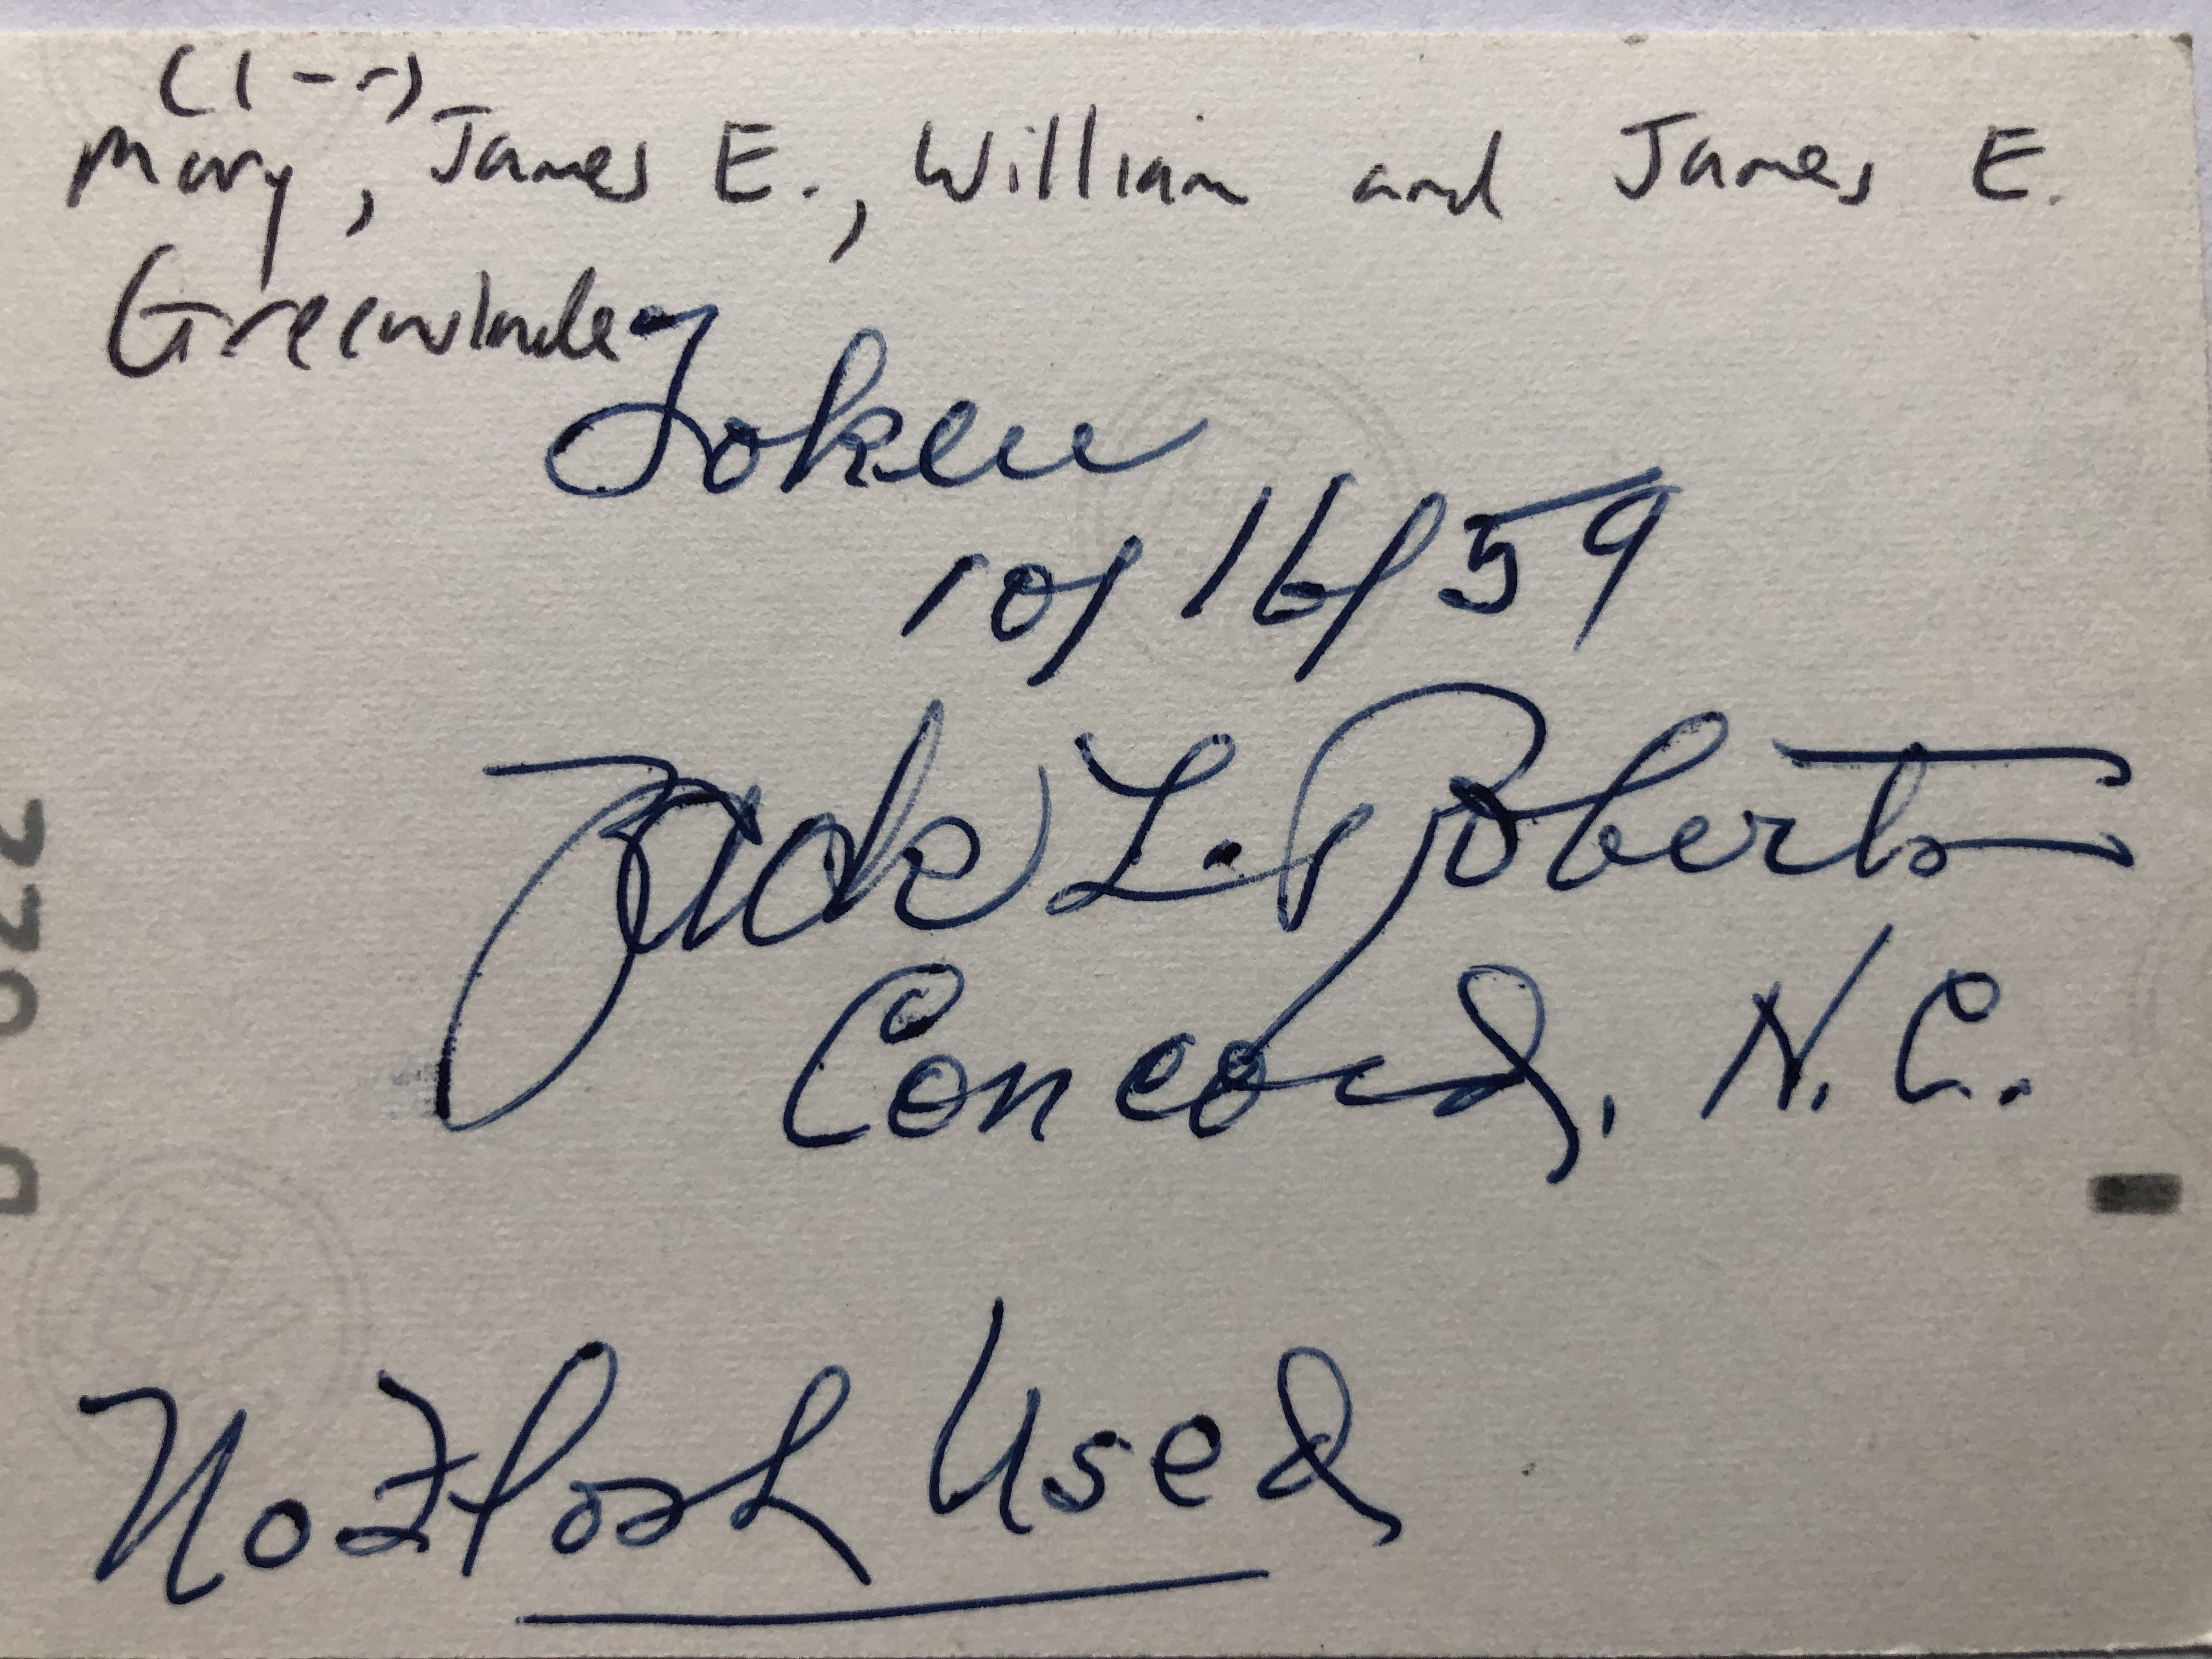 (1-r)
Mary, James E., William and James E.
Greenslade
Taken
10/16/59
Jack L. Roberts
Concord, N.C.
No Flash Used